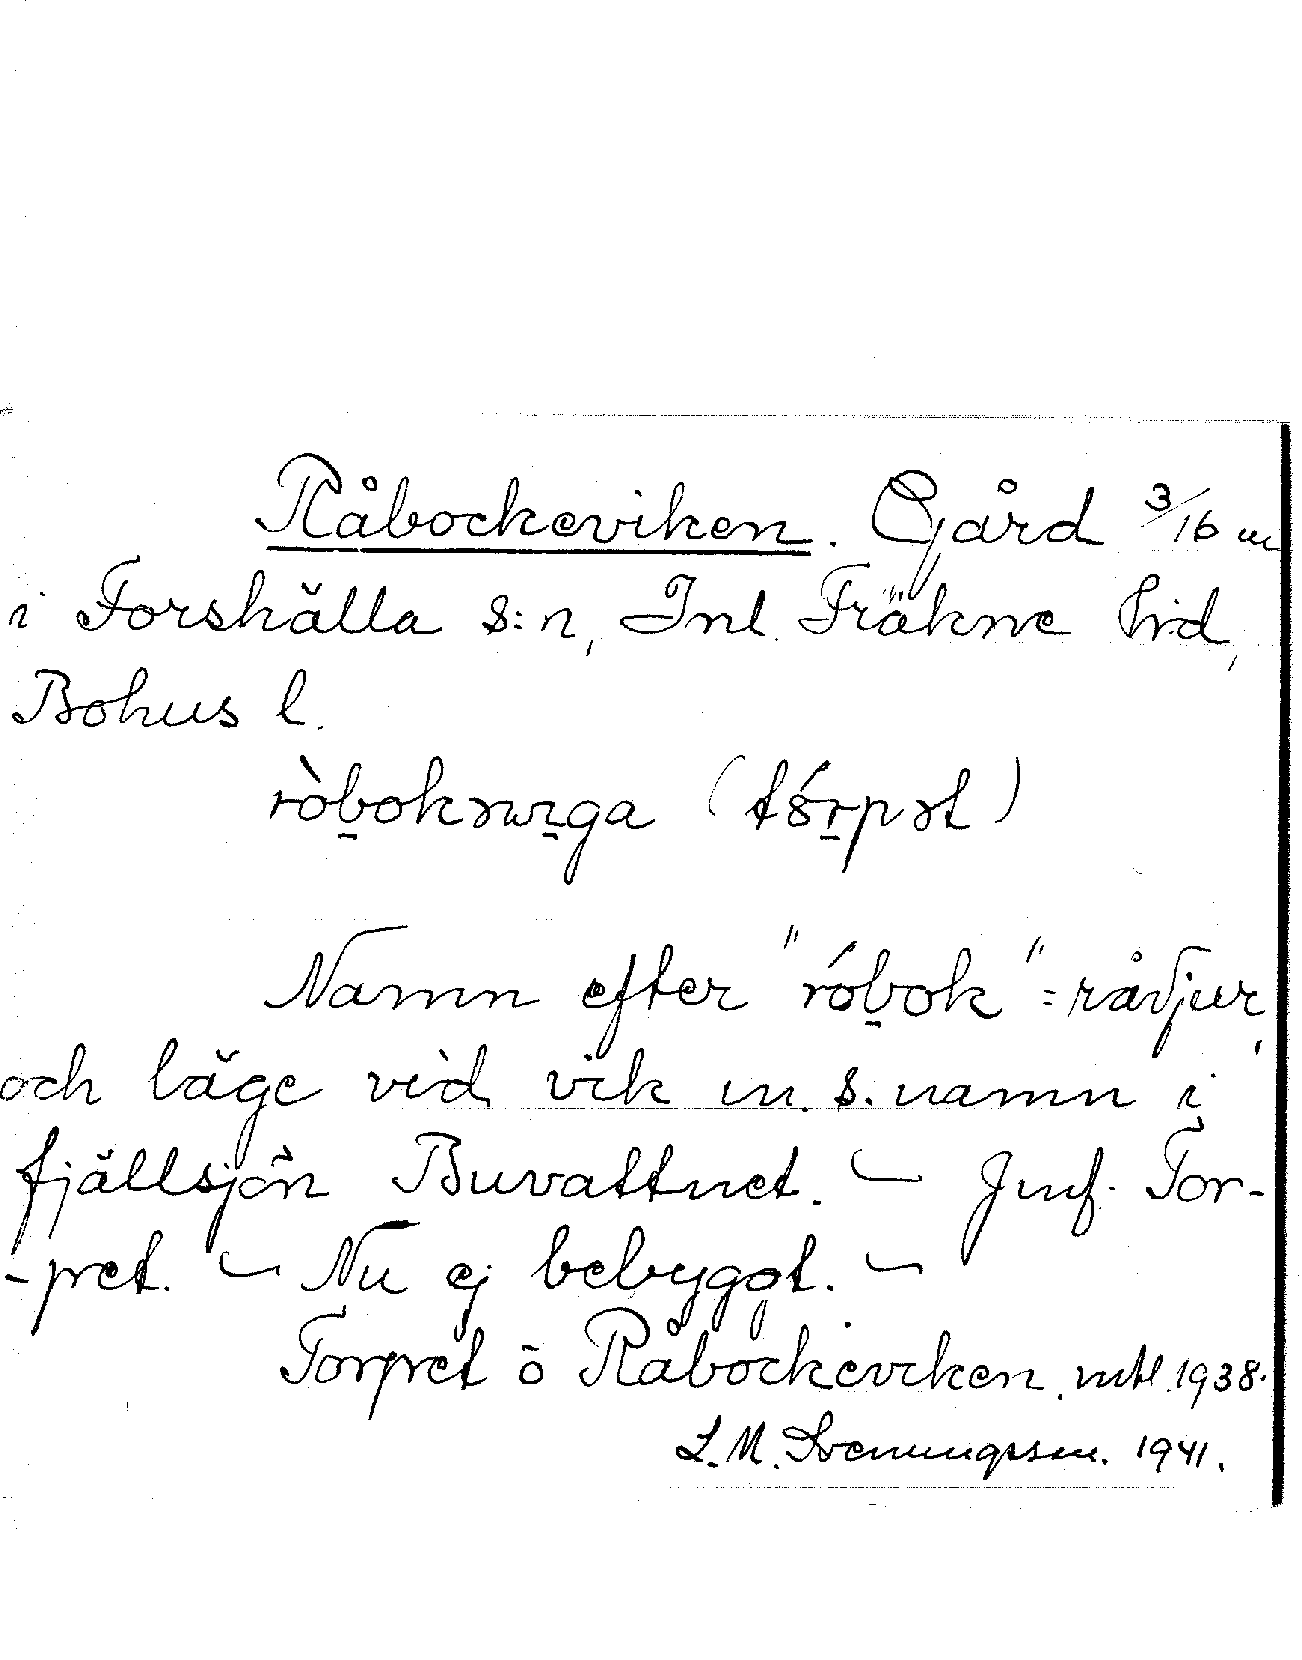 Råbockeviken. Gård 3/16 m
i Forshälla s:n, Inl. Fräkne hrd,
Bohus l.
ròbokəviga (tórpət)
Namn efter "róbok" = rådjur,
och läge vid vik m. s. namn i
fjällsjön Buvattnet. – Jmf. Tor-
-pret. – Nu ej bebyggt. –
Torpret o Råbockeviken. mtl. 1938.
L. M. Svenungsson. 1941.